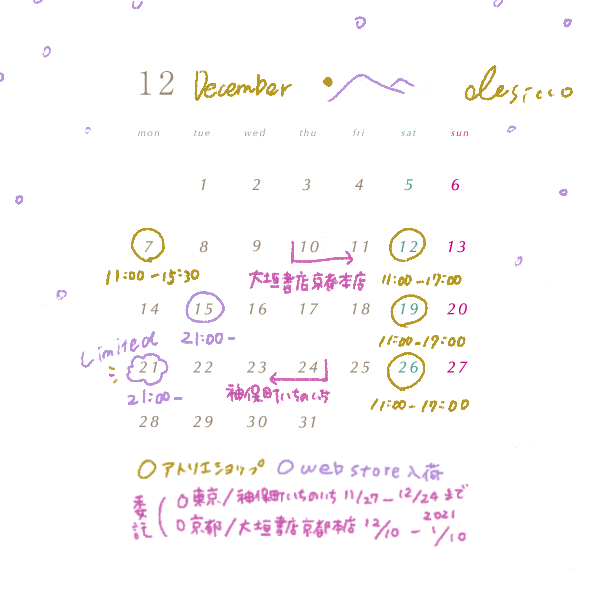 12 December desicco
mon tue wed thu fri sat sun
1 2 3 4 5 6
7 8 9 10 11 12 13
11:00-15:30 大垣書店京都本店 11:00-17:00
14 15 16 17 18 19 20
Limited 21:00- 11:00-17:00
21 22 23 24 25 26 27
21:00- 神保町いちのいち 11:00-17:00
28 29 30 31
○アトリエショップ ○web store入荷
委託
○東京/神保町いちのいち 11/27-12/24まで
○京都/大垣書店京都本店 12/10-2021 1/10